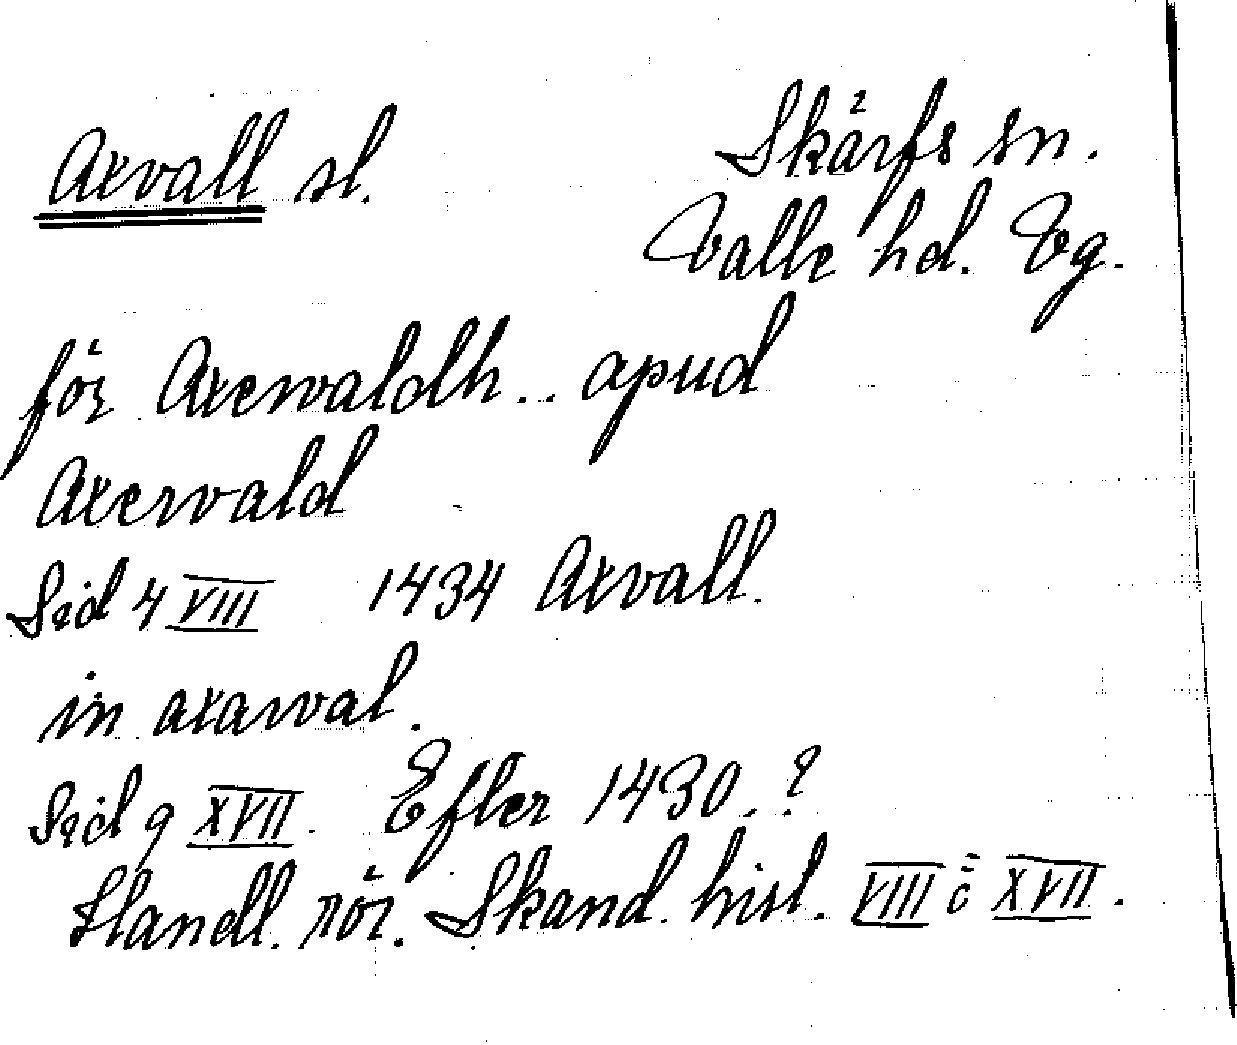 Axvall sl.
Skärfs sn.
Valle hd. Vg.
för Axewaldh.. apud
Axewald
Sid 4 VIII 1434 Axvall.
in axawal.
Sid 9 XVII. Efter 1430.?
Handl. rör. Skand. hist. VIII o XVII.